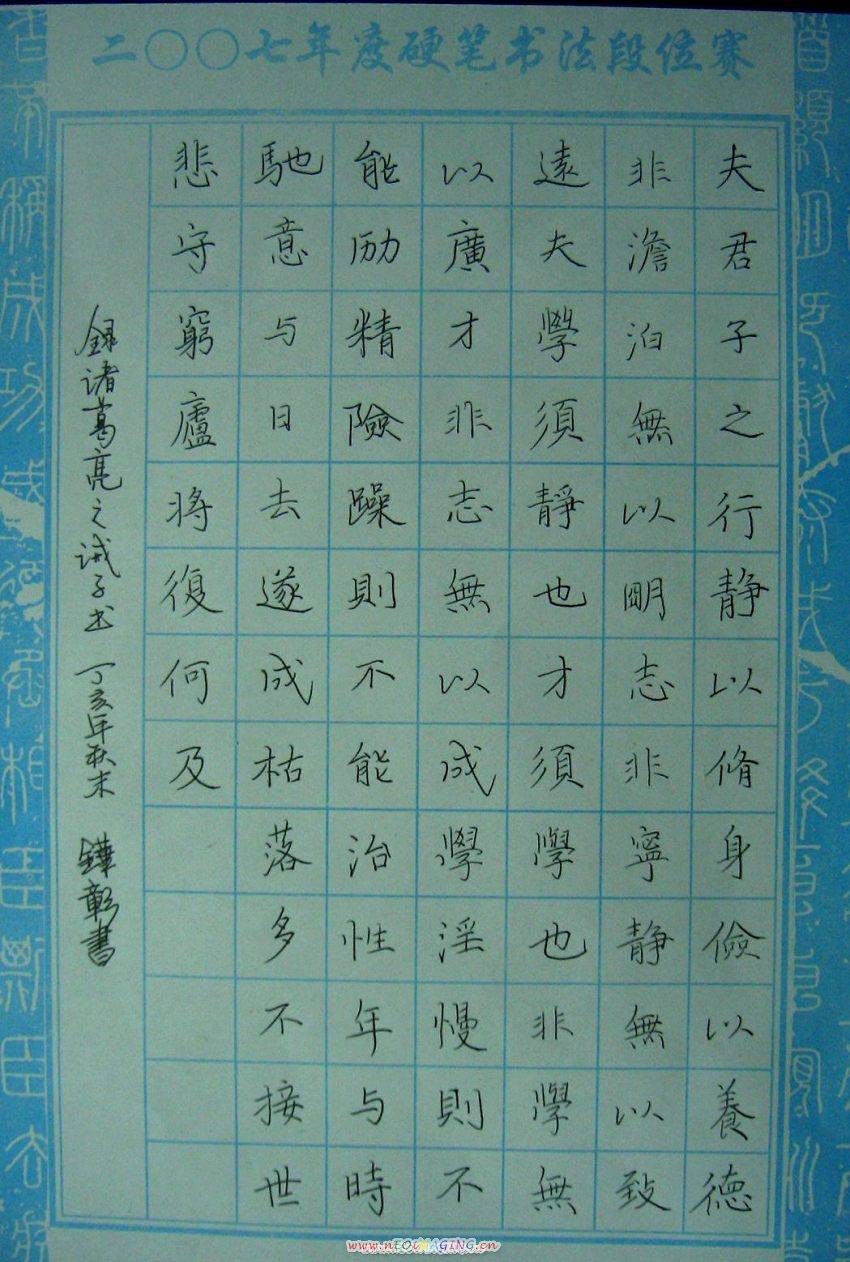 二〇〇七年度硬笔书法段位赛
夫君子之行静以脩身儉以養德
非澹泊無以明志非寧静無以致
遠夫學須静也才須學也非學無
以廣才非志無以成學淫慢則不
能励精險躁則不能治性年与時
馳意与日去遂成枯落多不接世
悲守窮廬將復何及
録诸葛亮之诫子书 丁亥年秋末 鏵彰書
www.nEOiMAGING.cn